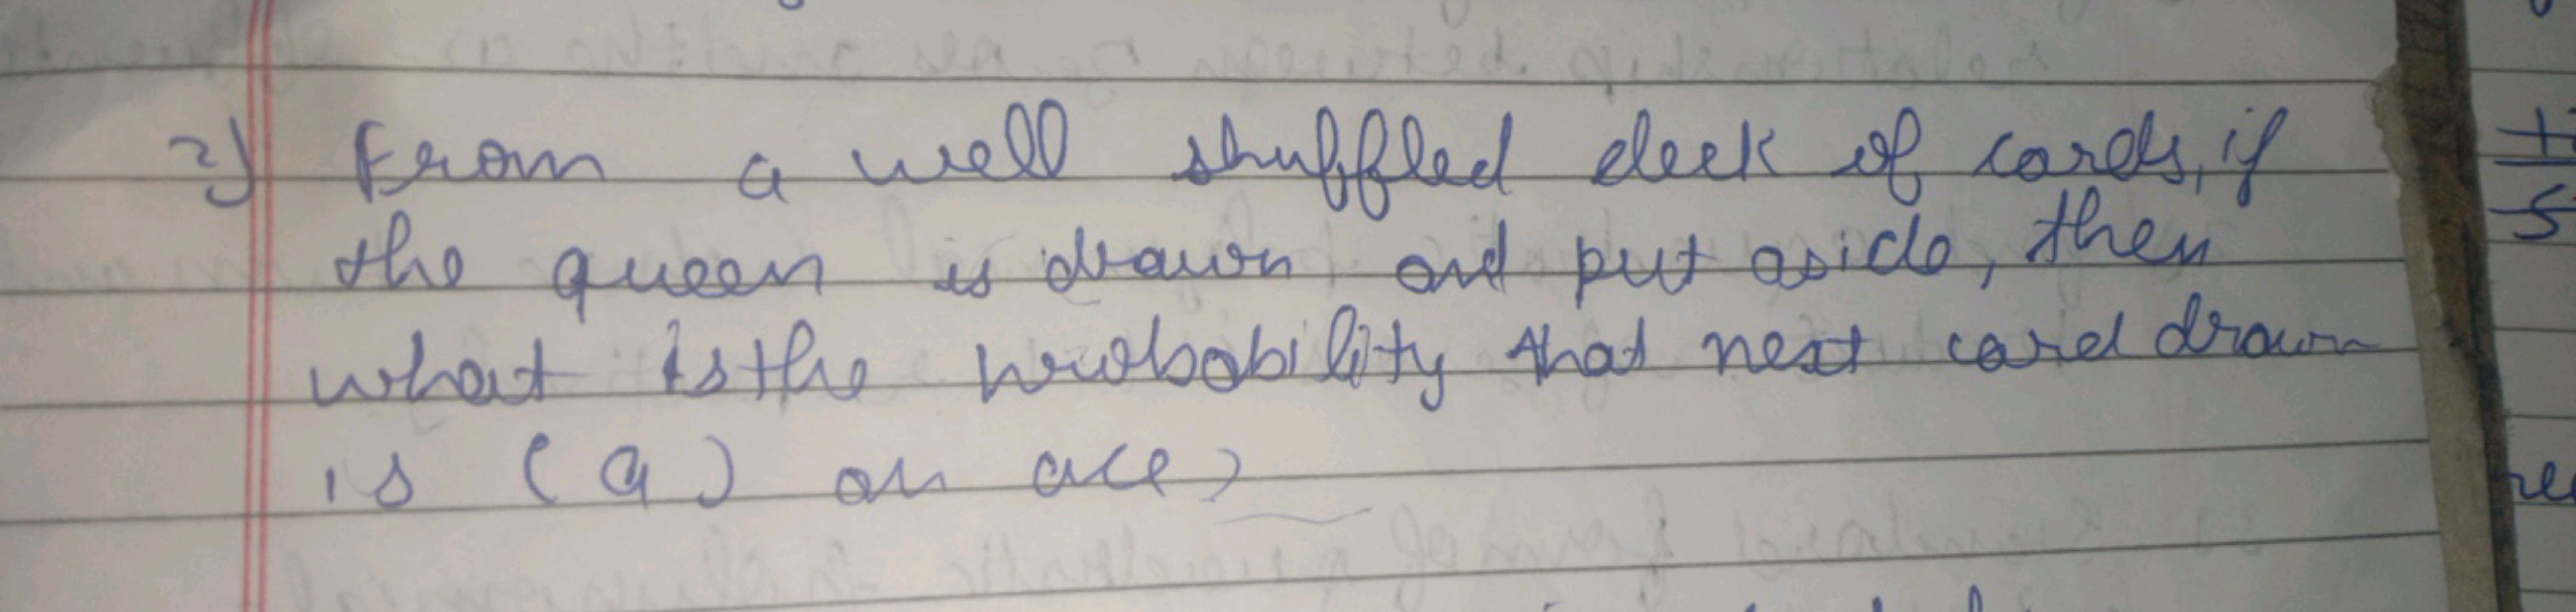 2) From a well shuffled deck of cards, if
the queen is drawn and put aside, then
what is the probability that next card drawn
is (a) an ace?